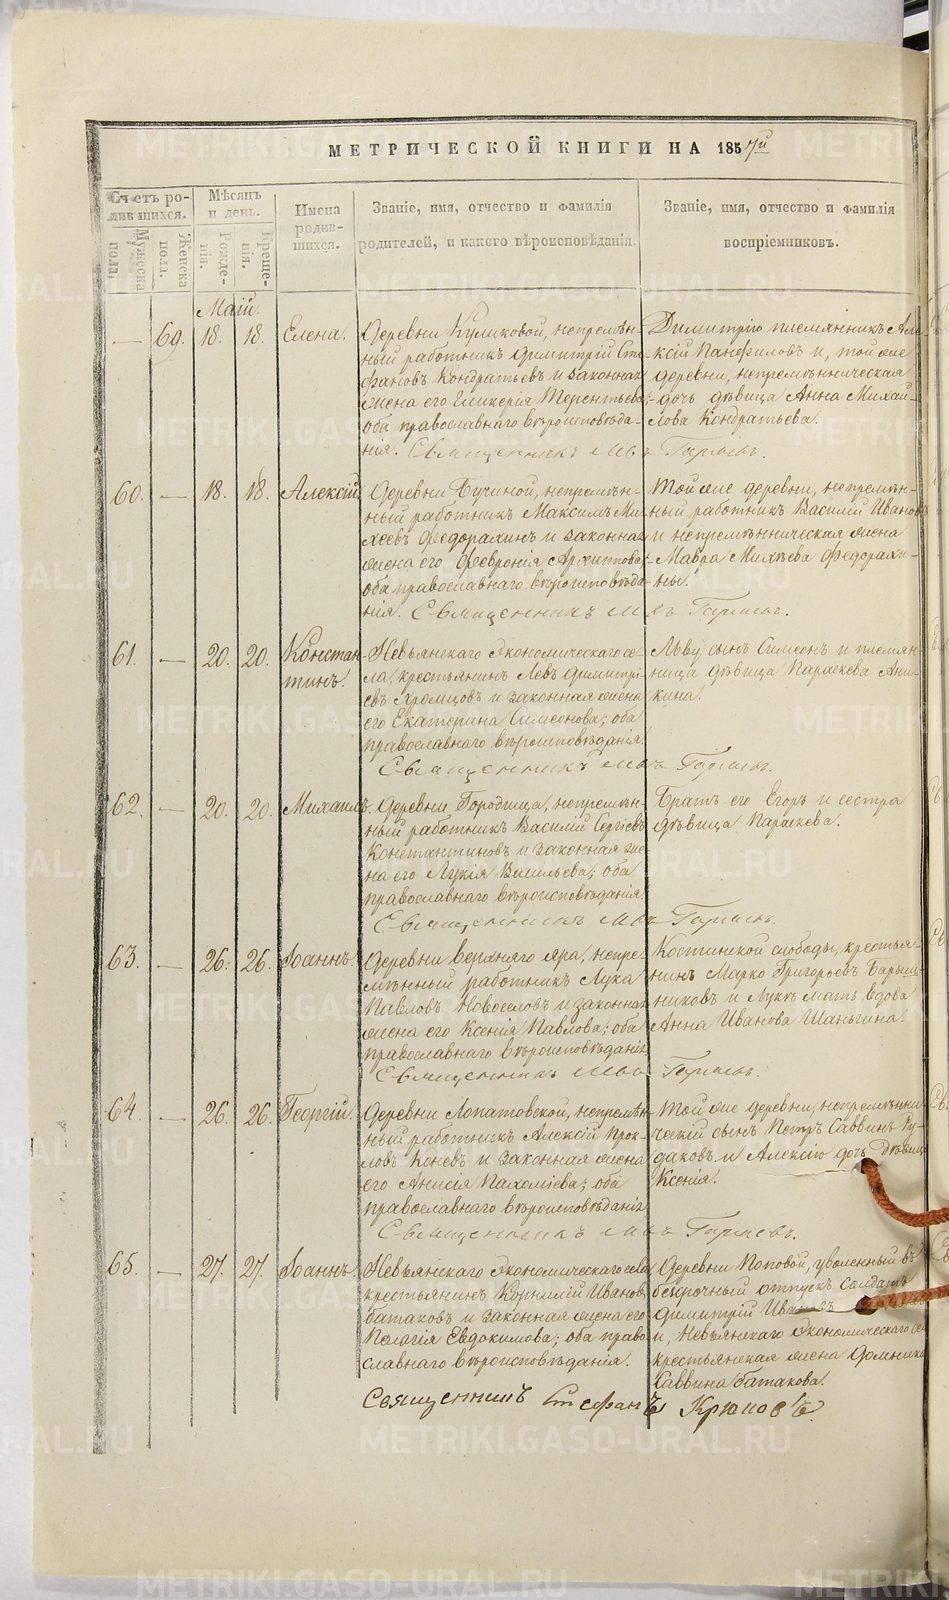 МЕТРИЧЕСКОЙ КНИГИ НА 1857й
Счетъ родившихся.
Мужеска пола.
Женска пола.
Мѣсяцъ и день.
Рожденія.
Крещенія.
Имена родившихся.
Званіе, имя, отчество и фамилія
родителей, и какого вѣроисповѣданія.
Званіе, имя, отчество и фамилія
воспріемниковъ.
Маій.
— 69. 18. 18. Елена.
Деревни Куликовой, непремѣн-
ный работникъ Димитрій Сте-
фановъ Кондратьевъ и законная
жена его Гликерія Терентьева;
оба православнаго вѣроисповѣда-
нія.
Димитрію племянникъ Але-
ксій Панфиловъ и, той же
деревни, непремѣнническая
дочь дѣвица Анна Михай-
лова Кондратьева.
Священникъ
60. — 18. 18. Алексій.
Деревни Бучиной, непремѣн-
ный работникъ Максимъ Ми-
хеевъ Федорахинъ и законная
жена его Февронія Архиппова;
оба православнаго вѣроисповѣда-
нія.
Той же деревни, непремѣн-
ный работникъ Василій Ивановъ
и непремѣнническая жена
Мавра Михѣева Федорахи-
ны.
Священникъ
61. — 20. 20. Констан-
тинъ.
Невьянскаго экономическаго се-
ла, крестьянинъ Левъ Димитрі-
евъ Хромцовъ и законная жена
его Екатерина Симеонова; оба
православнаго вѣроисповѣданія.
Льву сынъ Симеонъ и племян-
ница дѣвица Параскева Ани-
кина.
Священникъ
62. — 20. 20. Михаилъ.
Деревни Городища, непремѣн-
ный работникъ Василій Сергіевъ
Константиновъ и законная же-
на его Лукія Васильева; оба
православнаго вѣроисповѣданія.
Братъ его Егоръ и сестра
дѣвица Параскева.
Священникъ
63. — 26. 26. Іоаннъ.
Деревни Верхняго яра, непре-
мѣнный работникъ Лука
Павловъ Новоселовъ и законная
жена его Ксенія Павлова; оба
православнаго вѣроисповѣданія.
Костинской слободы, крестья-
нинъ Марко Григорьевъ Барыш-
никовъ и Лукѣ мать вдова
Анна Иванова Шаньгина.
Священникъ
64. — 26. 26. Георгій.
Деревни Лопатовской, непремѣн-
ный работникъ Алексій Прок-
ловъ Коневъ и законная жена
его Анисія Пахомієва; оба
православнаго вѣроисповѣданія.
Той же деревни, непремѣнни-
ческій сынъ Петръ Саввинъ Ру-
даковъ и Алексію дочь дѣвица
Ксенія.
Священникъ
65. — 27. 27. Іоаннъ.
Невьянскаго экономическаго села
крестьянинъ Корнилій Ивановъ
Батаковъ и законная жена его
Пелагія Евдокимова; оба право-
славнаго вѣроисповѣданія.
Деревни Поповой, уволенный въ
безсрочный отпускъ солдатъ
Димитрій Ивановъ
и, Невьянскаго экономическаго се-
крестьянская жена Домника
Саввина Батакова.
Священникъ Стефанъ Крюковъ.
METRIKI.GASO-URAL.RU